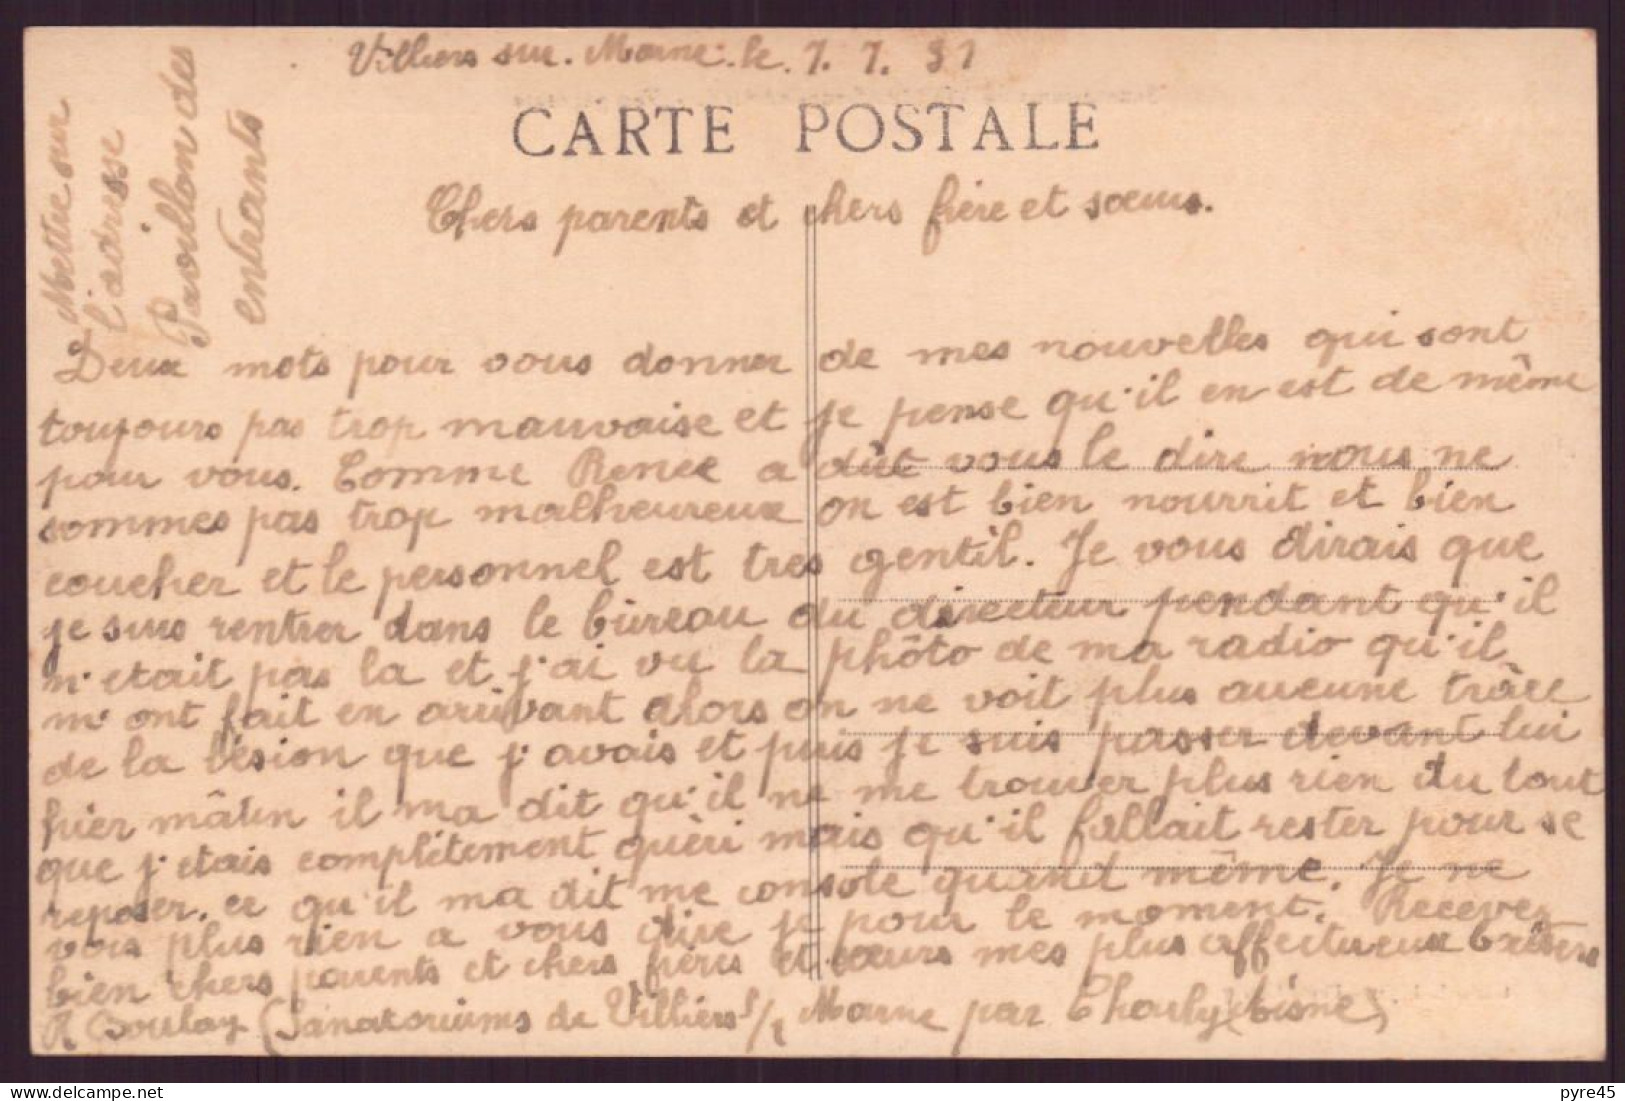 Villiers sur. Marne. le. 7. 7. 31
CARTE POSTALE
Mettre sur
l'adresse
Pavillon des
entrants
Chers parents et chers frère et sœurs.
Deux mots pour vous donner de mes nouvelles qui sont
toujours pas trop mauvaise et je pense qu'il en est de même
pour vous. Comme Renee a dût vous le dire nous ne
sommes pas trop malheureux on est bien nourrit et bien
coucher et le personnel est tres gentil. Je vous dirais que
je suis rentrer dans le bureau du directeur pendant qu'il
n'etait pas la et j'ai vu la phôto de ma radio qu'il
m'ont fait en arrivant alors on ne voit plus aucune trâce
de la lésion que j'avais et puis je suis passer devant lui
hier mâtin il ma dit qu'il ne me trouver plus rien du tout
que j'etais complétement guèri mais qu'il fallait rester pour se
reposer. ce qu'il ma dit me console quand même. Je ne
vois plus rien a vous dire je pour le moment. Recevez
bien chers parents et chers frères et sœurs mes plus affectueux baisers
R Boulay (Sanatoriums de Villiers s/ Marne par Charly (Aisne)
pyre45